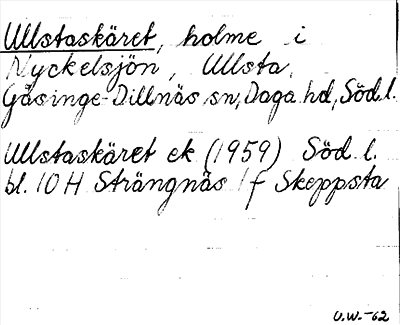 Ullstaskäret, holme i
Nyckelsjön, Ullsta,
Gåsinge-Dillnäs sn, Daga hd, Södl.
Ullstaskäret ek (1959) Söd. l.
bl. 10 H Strängnäs 1 f Skeppsta
U.W.-62